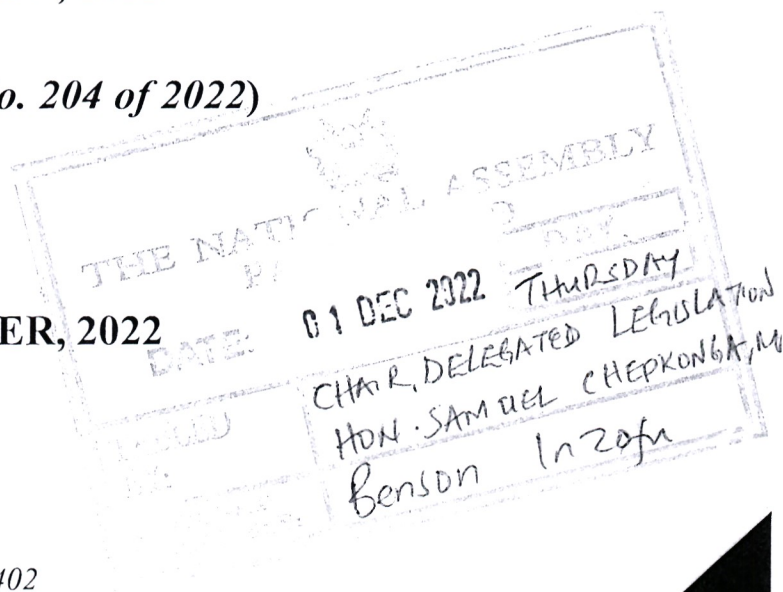 o. 204 of 2022)
THE NATIONAL ASSEMBLY
DAY.
DATE: 01 DEC 2022 THURSDAY
ER, 2022
CHAIR, DELEGATED LEGISLATION
HON. SAMUEL CHEPKONGA, M
Benson Inzofu
402